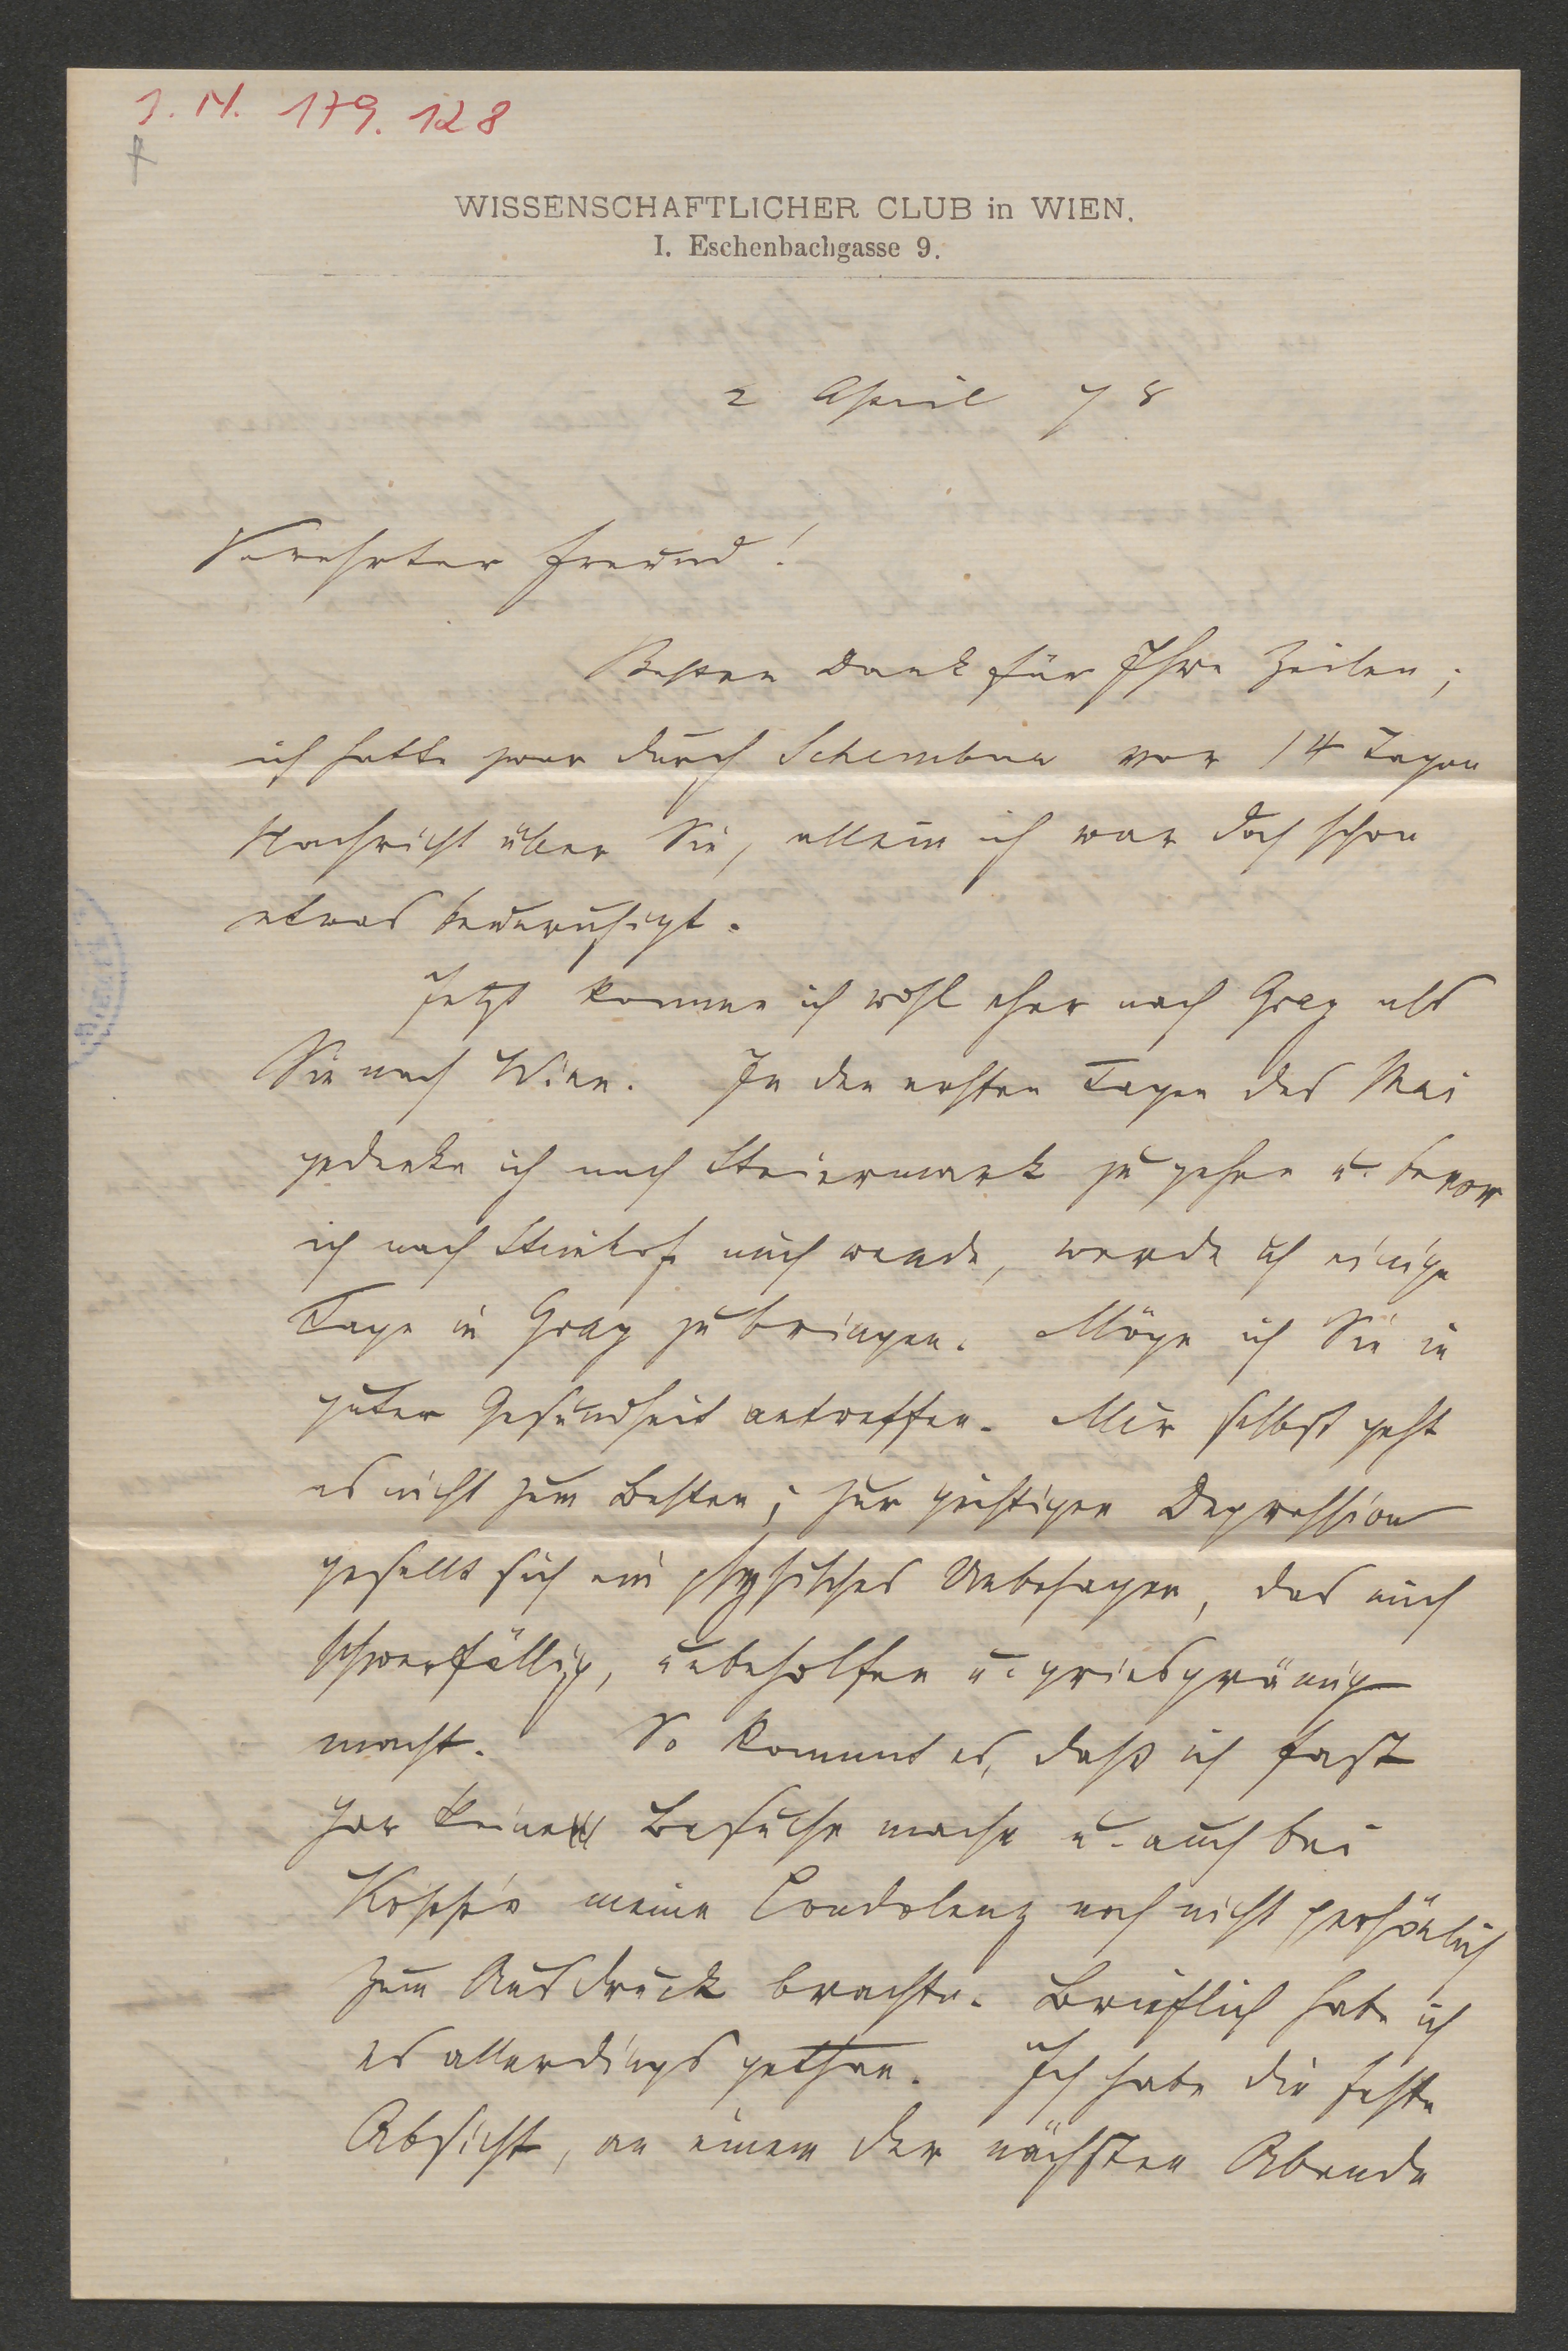 I. N. 179.128
WISSENSCHAFTLICHER CLUB in WIEN.
I. Eschenbachgasse 9.
2 April 78
Verehrter Freund!
Besten Dank für Ihre Zeilen;
ich hatte zwar durch vor 14 Tagen
Nachricht über Sie, allein ich war doch schon
etwas beunruhigt.
Jetzt komme ich wohl eher nach Graz als
Sie nach Wien. In den ersten Tagen des Mai
gedenke ich nach Steiermark zu gehen u. bevor
ich nach mich wende, werde ich einige
Tage in Graz zubringen. Möge ich Sie in
guter Gesundheit antreffen. Mir selbst geht
es nicht zum Besten; zur geistigen Depression
gesellt sich ein physisches Unbehagen, das mich
schwerfällig, unbeholfen u. griesgrämig
macht. So kommt es, daß ich fast
gar keine Besuche mache u. auch bei
meine Condolenz noch nicht persönlich
zum Ausdruck brachte. Brieflich habe ich
es allerdings gethan. Ich habe die feste
Absicht, an einem der nächsten Abende